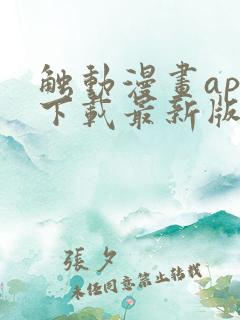 触動漫畫ap
下載最新版
張夕
未經同意禁止轉載